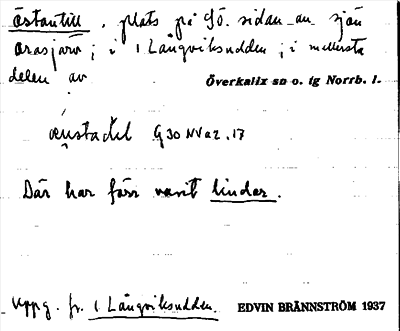 östantill, plats på sö. sidan av sjön
Orasjärv; i 1 Långviksudden; i mellersta
delen av
Överkalix sn o. tg Norrb. l.
G30 NV a2. 17
Där har förr varit lindor.
Uppg. fr. 1 Långviksudden.
EDVIN BRÄNNSTRÖM 1937